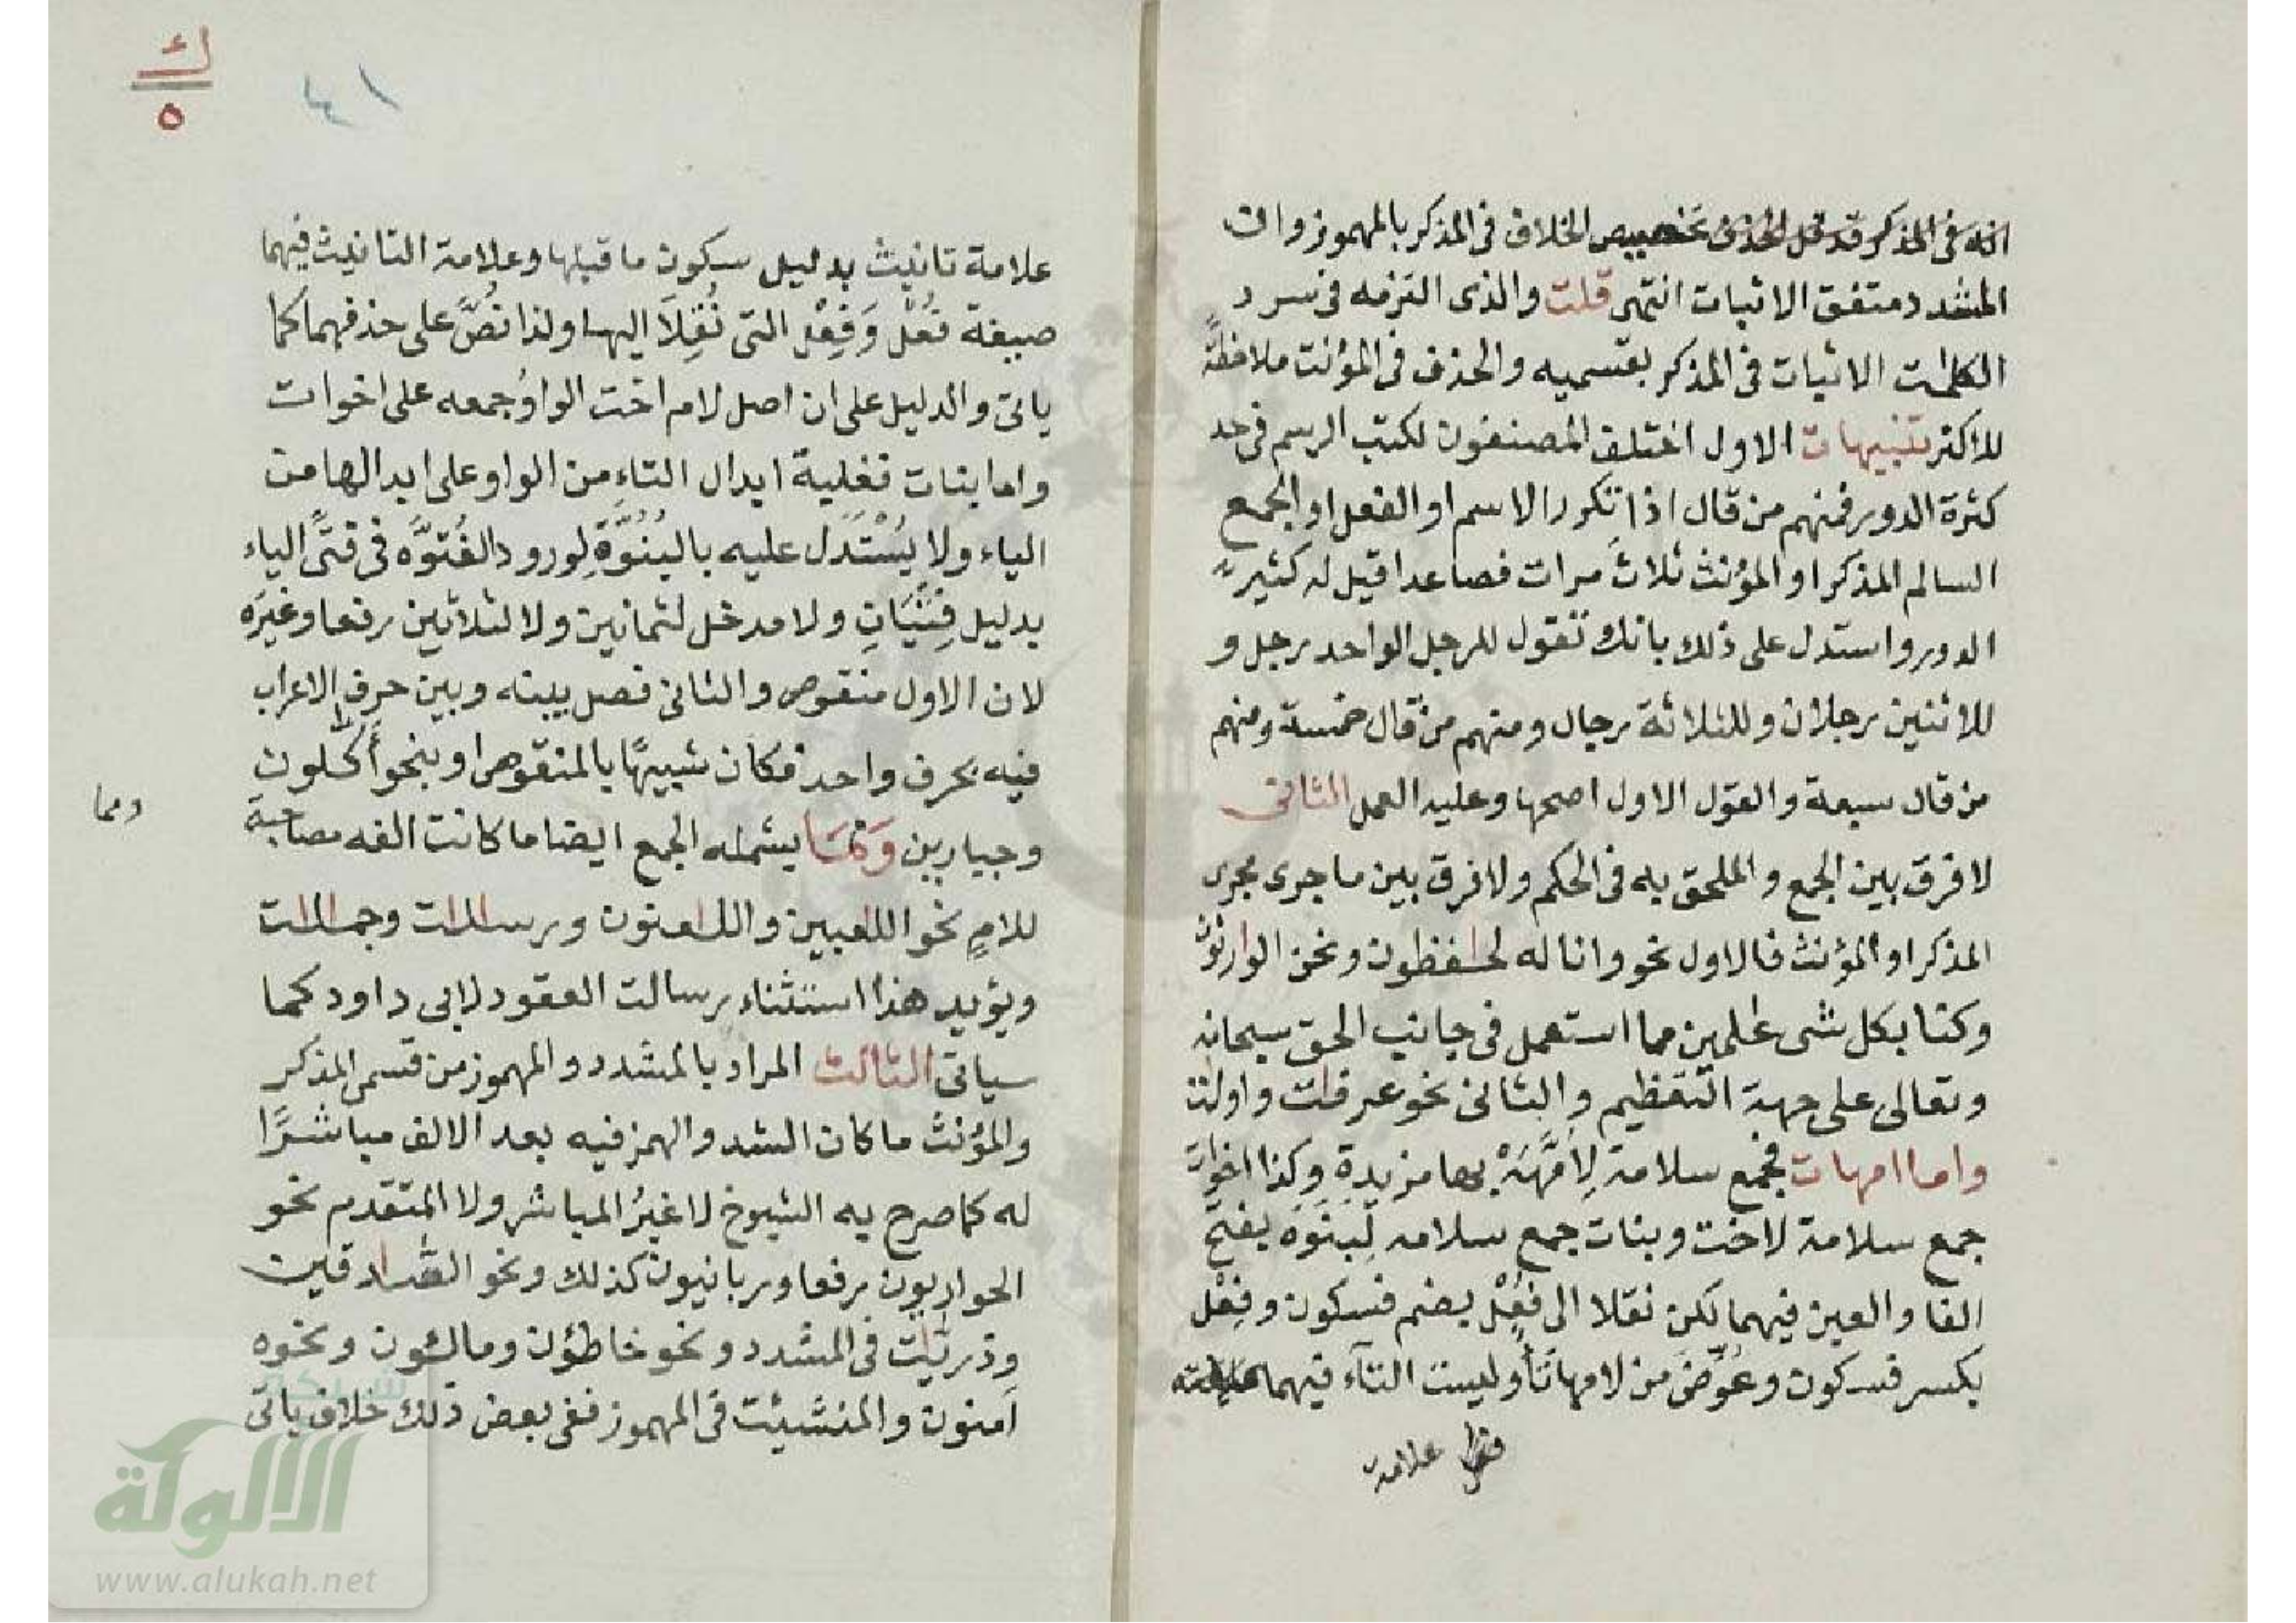 انه فى المذكر قد قل الحذف تخصيص الخلاف فى المذكر بالمهموز وان
المشدد متفق الاثبات انتهى قلت والذى التزمه فى سرد
الكلمات الاثبات فى المذكر بقسميه والحذف فى المؤنث ملاحظةً
للاكثر تنبيهات الاول اختلف المصنفون لكتب الرسم فى حد
كثرة الدور فمنهم من قال اذا تكرر الاسم او الفعل او الجمع
السالم المذكر او المؤنث ثلاث مرات فصاعدا قيل له كثير
الدور واستدل على ذلك بانك تقول للرجل الواحد رجل و
للاثنين رجلان وللثلاثة رجال ومنهم من قال خمسة ومنهم
من قال سبعة والقول الاول اصحها وعليه العمل الثانى
لا فرق بين الجمع والملحق به فى الحكم ولا فرق بين ما جرى مجرى
المذكر او المؤنث فالاول نحو وانا له لحافظون ونحن الوارثون
وكنا بكل شى عالمين مما استعمل فى جانب الحق سبحانه
وتعالى على جهة التعظيم والثانى نحو عرفات واولات
واما امهات فجمع سلامة لِأُمَّهَةْ بها مزيدةٍ وكذا اخوات
جمع سلامة لاخت وبنات جمع سلامه لِبَنَوَه بفتح
الفا والعين فيهما لكن نقلا الى فُعْل بضم فسكون وفِعْل
بكسر فسكون وعُوِّضَ من لامها تاً وليست التآء فيهما
علامة
علامة تانيث بدليل سكون ما قبلها وعلامة التانيث فيهما
صيغة فُعْل وَفِعْل التى نُقِلاَ اليها ولذا نُصَّ على حذفهما كما
ياتى والدليل على ان اصل لام اخت الواوُ جمعه على اخوات
واما بنات فغلبة ابدال التاءِ من الواو على ابدالها من
الياء ولا يُسْتَدل عليه بالبُنُوَّةِ لورود الفُتوَّه فى فتًى الياء
بدليل فِتْيَانِ ولا مدخل لثمانين ولا لثلاثين رفعا وغيرَه
لان الاول منقوص والثانى فصل بينه وبين حرف الاعراب
فيه بحرف واحد فكان شبيهًا بالمنقوص او بنحو أكّٰلون
وجبارين وَمَما يشمله الجمع ايضا ما كانت الفه مصاحبة
ومما
للامٍ نحو اللاعبين واللاعنون ورسالات وجمالات
ويؤيد هذا استثناء رسالت العقود لابى داود كما
سياتى الثالث المراد بالمشدد والمهموز من قسمى المذكر
والمؤنث ما كان الشد والهمز فيه بعد الالف مباشرًا
له كما صرح به الشيوخ لا غيرُ المباشر ولا المتقدم نحو
الحواريون رفعا وربانيون كذلك ونحو الصَّادقين
وذريٰت فى المشدد ونحو خاطؤن ومالئون ونحوه
آمنون والمنشئت فى المهموز ففى بعض ذلك خلاف ياتى
٤١
ك
٥
شبكة
الألوكة
www.alukah.net